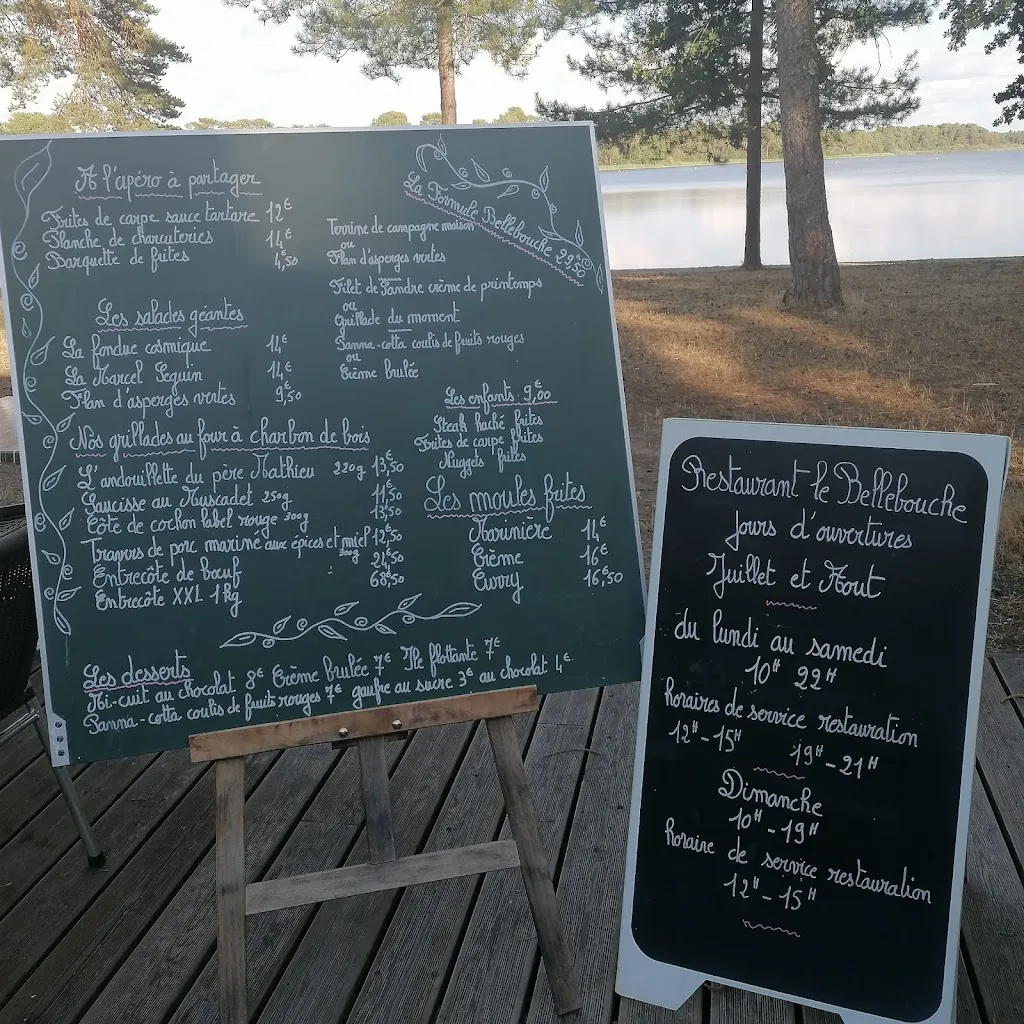 A l'apéro à partager
Frites de carpe sauce tartare 12€
Planche de charcuteries 14€
Barquette de frites 4,50
Les salades géantes
La fondue cosmique 14€
La Marcel Seguin 14€
Flan d'asperges vertes 9,50
Nos grillades au four à charbon de bois
L'andouillette du père Mathieu 220g 13,50
Saucisse au Muscadet 250g 11,50
Côte de cochon label rouge 300g 13,50
Travers de porc mariné aux épices et miel 12,50
Entrecôte de bœuf 300g 24,50
Entrecôte XXL 1Kg 68,50
La Formule Bellebouche 29,50
Terrine de campagne maison
ou
Flan d'asperges vertes
Filet de Sandre crème de printemps
ou
Grillade du moment
Panna-cotta coulis de fruits rouges
ou
Crème brulée
Les enfants 9,00€
Steak haché frites
Frites de carpe frites
Nuggets frites
Les moules frites
Marinière 14€
Crème 16€
Curry 16,50
Les desserts
Mi-cuit au chocolat 8€ Crème brulée 7€ Ile flottante 7€
Panna-cotta coulis de fruits rouges 7€ gaufre au sucre 3€ au chocolat 4€
Restaurant le Bellebouche
Jours d'ouvertures
Juillet et Aout
du lundi au samedi
10H 22H
horaires de service restauration
12H-15H 19H-21H
Dimanche
10H-19H
horaire de service restauration
12H-15H